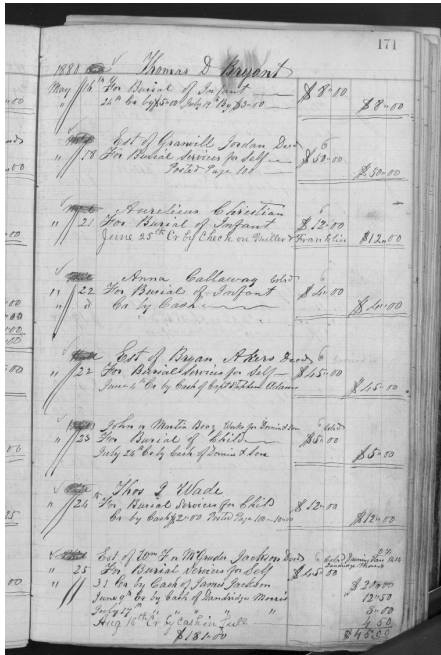 171
1880 Thomas D Bryant
May 16th For Burial of Infant $8.00
" 24th Cr by $5.00 July 12th By $3.00 $8.00
Est of Granvill Jordan Decd
" 18 For Burial Services for Self $50.00
Posted Page 100 $50.00
Aurelius Christian
" 21 For Burial of Infant $12.00
June 25th Cr by Check on Miller & Franklin $12.00
Anna Callaway Cold
" 22 For Burial of Infant $4.00
" " Cr by Cash $4.00
Est of Bryan Akers Decd
" 22 For Burial Services for Self $45.00
June 4th Cr by Cash of Capt Stephen Adams $45.00
John or Martin Booz Works for
" 23 For Burial of Child $5.00
July 24th Cr by Cash of & Son $5.00
Thos J Wade
" 24th For Burial Services for Child $12.00
Cr by Cash $2.00 Posted Page 100-10.00 $12.00
Est of Wm F or McGruder Jackson Decd
" 25 For Burial Services for Self $45.00
" 31 Cr by Cash of James Jackson $21.00
June 9th Cr by Cash of Dandridge Morris " 12.50
July 17th " " " " 3.00
Aug 16th Cr by Cash in Full 4.50
$181.00 $45.00